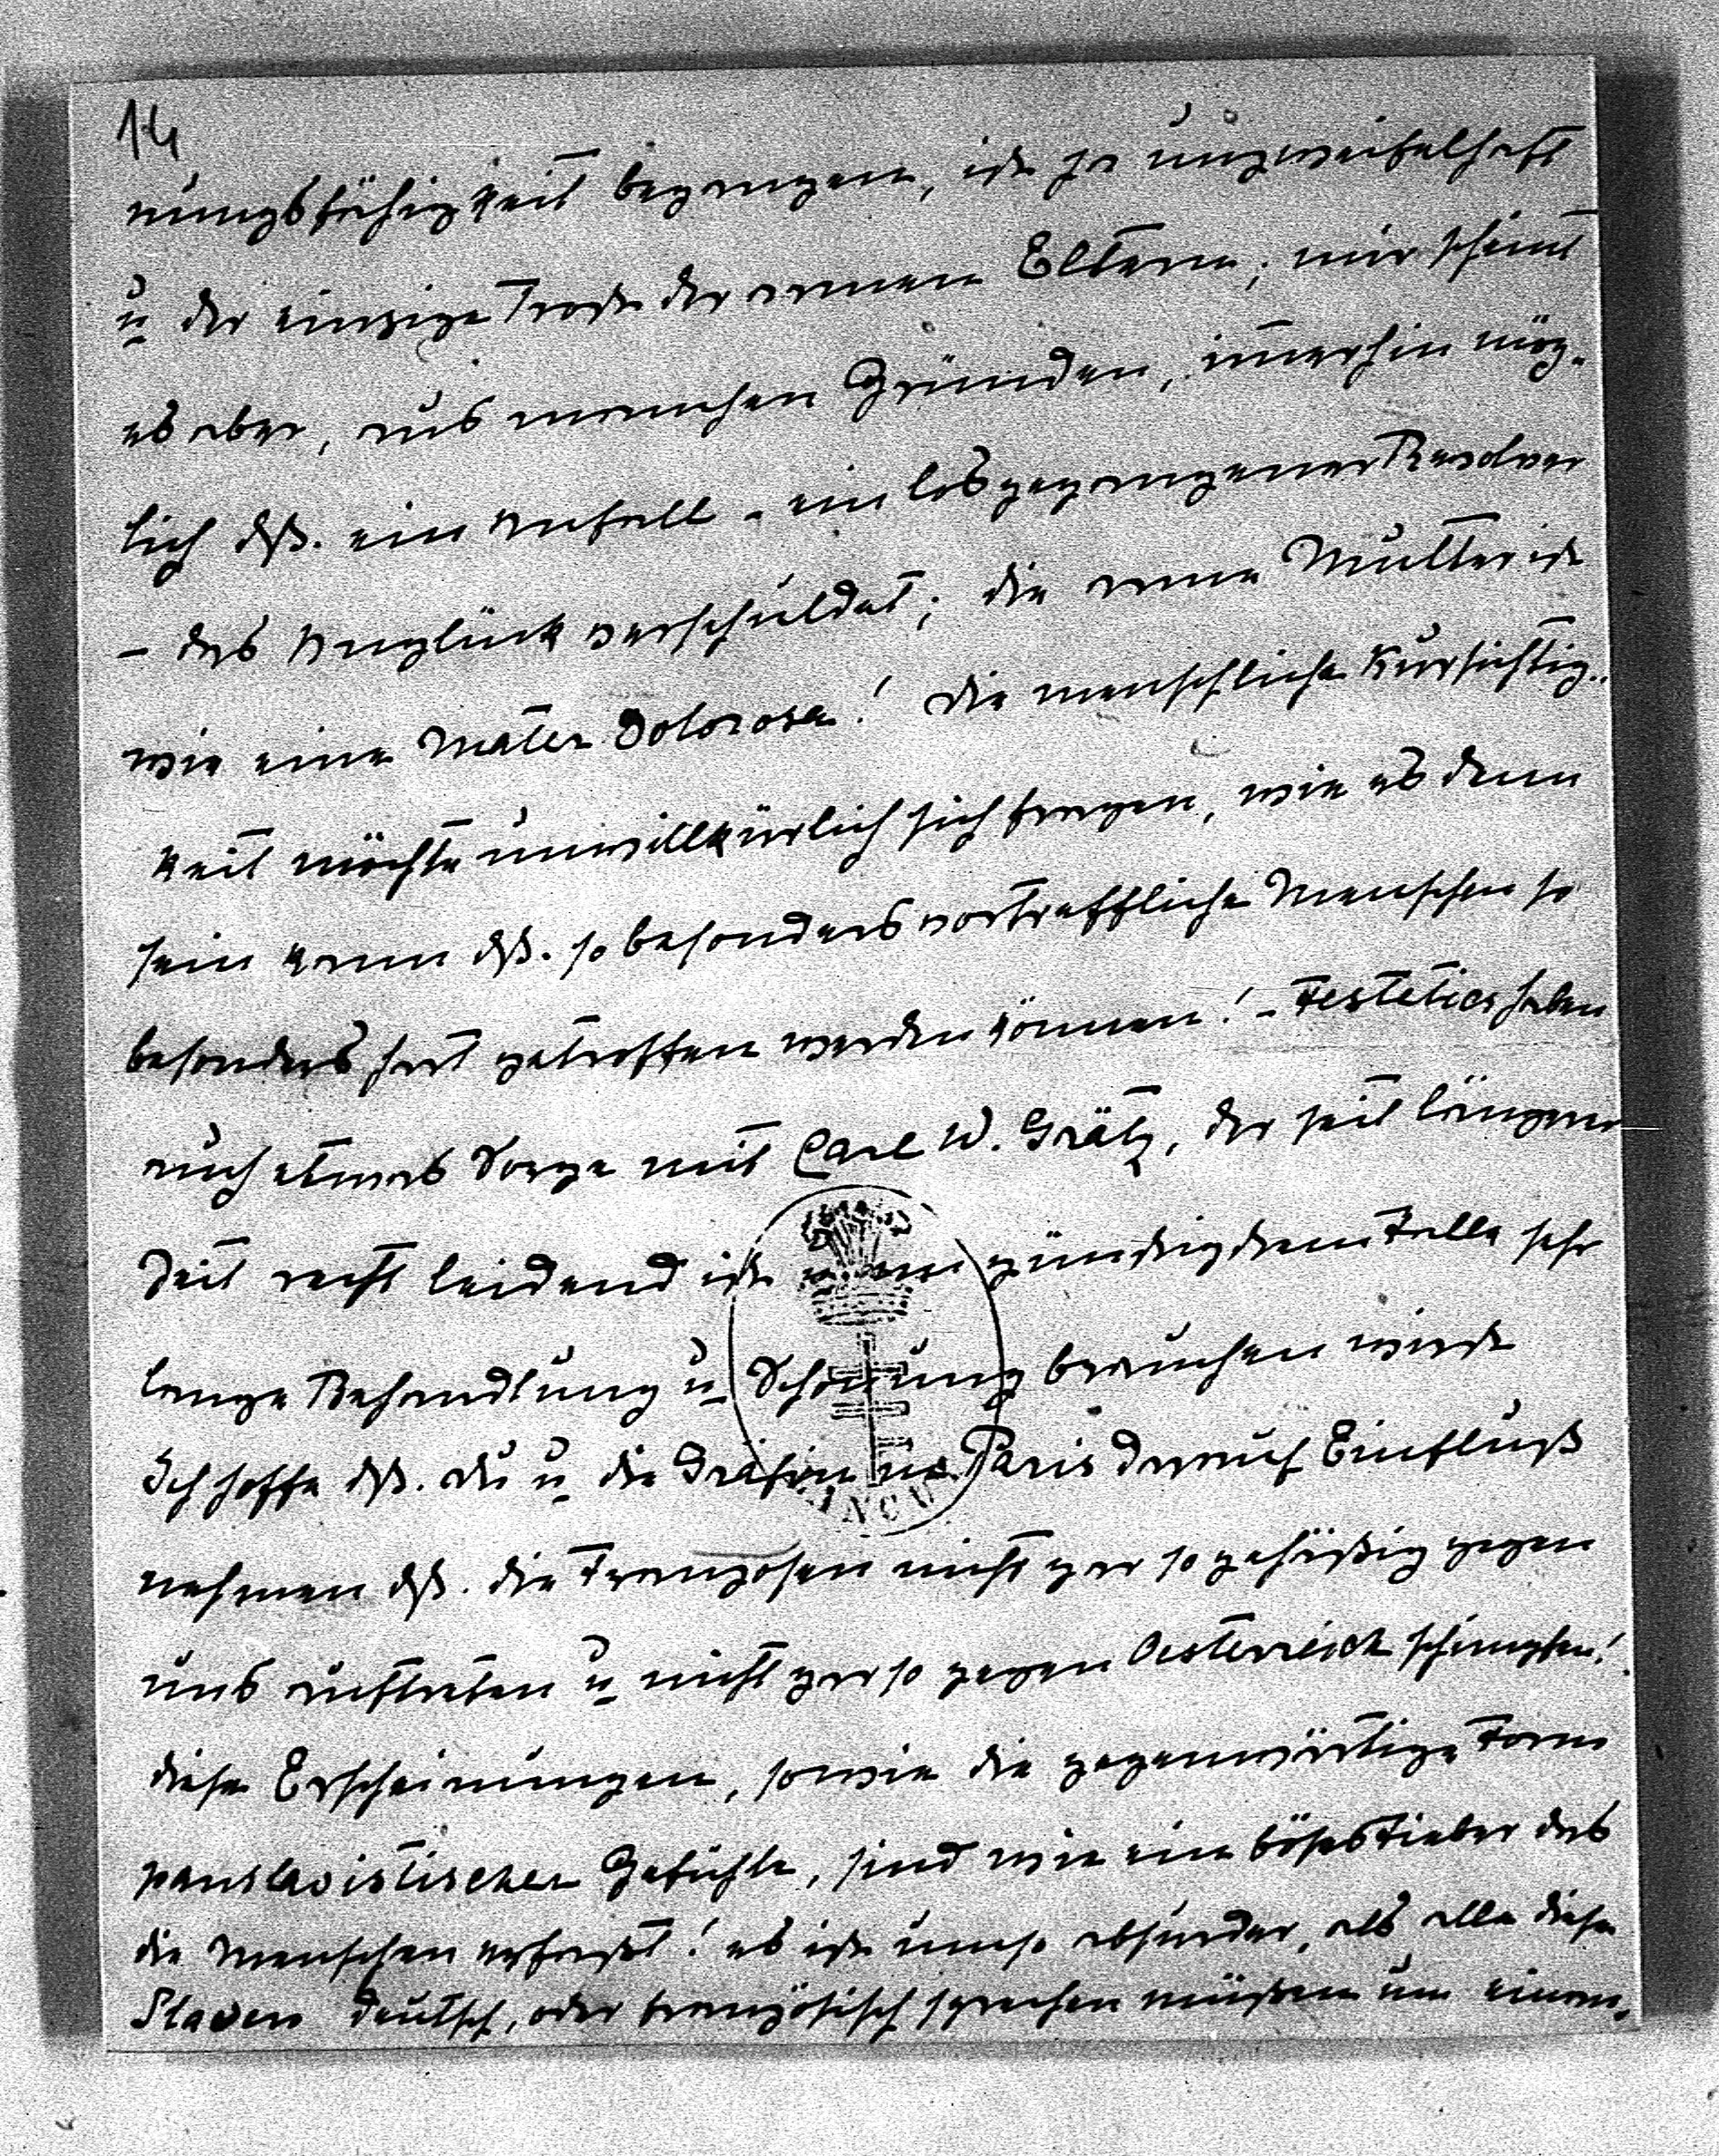 14
nungsfähigkeit begangen, ist ja unzweifelhaft
u der einzige Trost der armen Eltern; mir scheint
es aber, aus manchen Gründen, im̄erhin mög-
lich dß. ein Unfall - ein losgegangener Revolver
- das Unglück verschuldet; die arme Mutter ist
wie eine Mater Dolorosa! die menschliche Kursichtig-
keit möchte unwillkürlich sich fragen, wie es denn
sein kann dß. so besonders vortreffliche Menschen so
besonders hart getroffen werden können! - Festetics haben
auch etwas Sorge mit Carl W. Grätz, der seit längerer
Zeit recht leidend ist u im günstigsten Falle sehr
lange Behandlung u Schonung brauchen wird
Ich hoffe dß. du u die Gräfin in Paris darauf Einfluß
nehmen dß. die Franzosen nicht gar so gehäßig gegen
uns auftreten u nicht gar so gegen Oesterreich schimpfen!
diese Erscheinungen, sowie die gegenwärtige Form
panslavistischer Gefühle, sind wie ein böses Fieber das
die Menschen erfaßt! es ist umso absurder, als alle diese
Slaven deutsch, oder französisch sprechen müßen um einan-